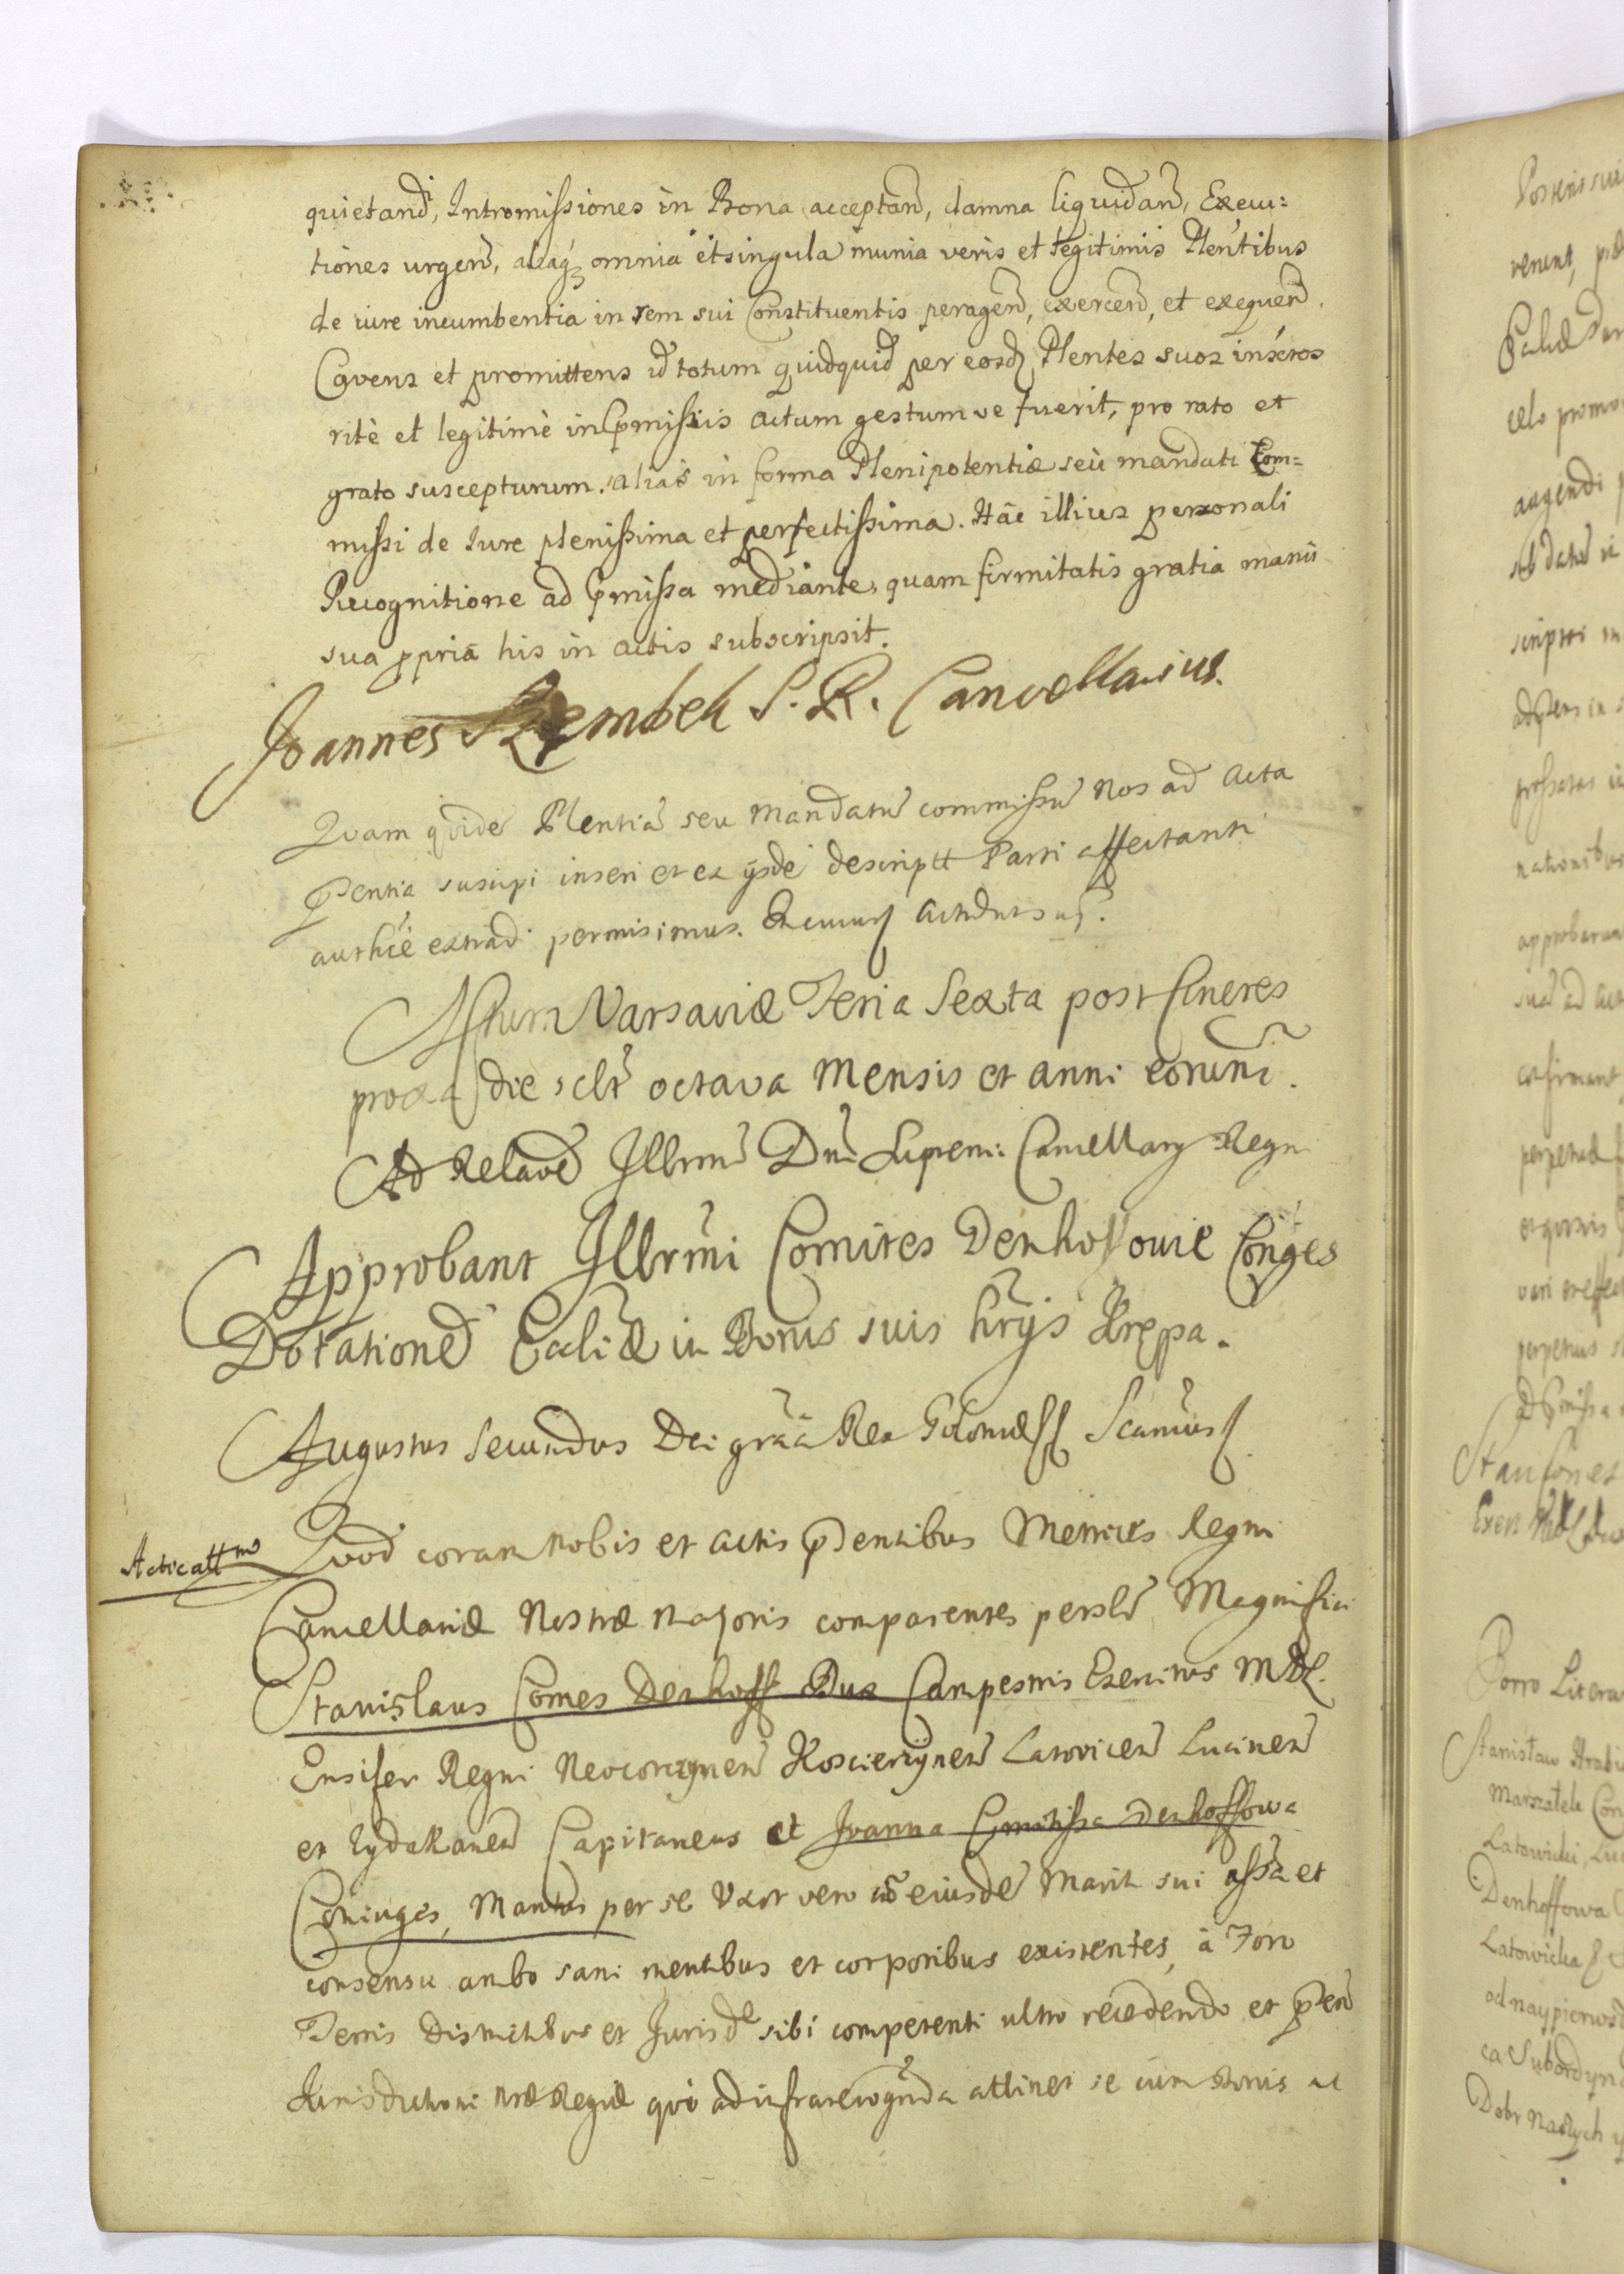 quietand, Intromissiones in Bona acceptan, damna liquidan, Execu=
tiones urgen, aliaq3 omnia et singula munia veris et legitimis Plentibus
de iure incumbentia in rem sui Constituentis peragen, exercen, et exequen.
Cavens et promittens id totum quidquid per eosd Plentes suos insctos
ritè et legitimè in pmissis actum gestum ve fuerit, pro rato et
grato suscepturum. alias in forma Plenipotentiæ seù mandati Com=
missi de Iure plenissima et perfectissima. Hac illius personali
Recognitione ad pmissa mediante, quam firmitatis gratia manu
sua ppria his in actis subscripsit.
Joannes Szembek S. R. Cancellarius.
Quam quide Plentia seu Mandatu commissu Nos ad Acta
pentia suscipi inseri et ex ysde descriptt Parti affectanti
authce extradi permisimus. In cuius
Actum Varsaviæ Feria Sexta post Cineres
proxa die sclt octava Mensis et anni eorund.
Ad Relaoe Illrmi Dni Supremi Cancellary Regn
Approbant Illrmi Comites Denhoffowie Conges
Dotatione Eccliæ in Bonis suis hrys Krępa.
Augustus Secundus Dei gratia Rex Poloniæ Scamus
Acticattno Quod coram nobis et actis pentibus Metrices Regni
Cancellariæ Nostræ Majoris comparentes persler Magnifici
Stanislaus Comes Denhoff Dux Campestris Exercitus MDL.
Ensifer Regni Neocorczynen Koscierzynen Latovicen Lucinen
et Capitaneus et Joanna Comitissa Denhoffowa
Coniuges, Maritus per se Uxor vero eiusde Mariti sui asstia et
consensu ambo sani mentibus et corporibus existentes, à Foro
Terris Districtibus et Jurisde sibi competenti ultro recedendo et pen
Jurisdictioni nræ Regiæ quo ad infrarecognda attinet se cum Bonis ac